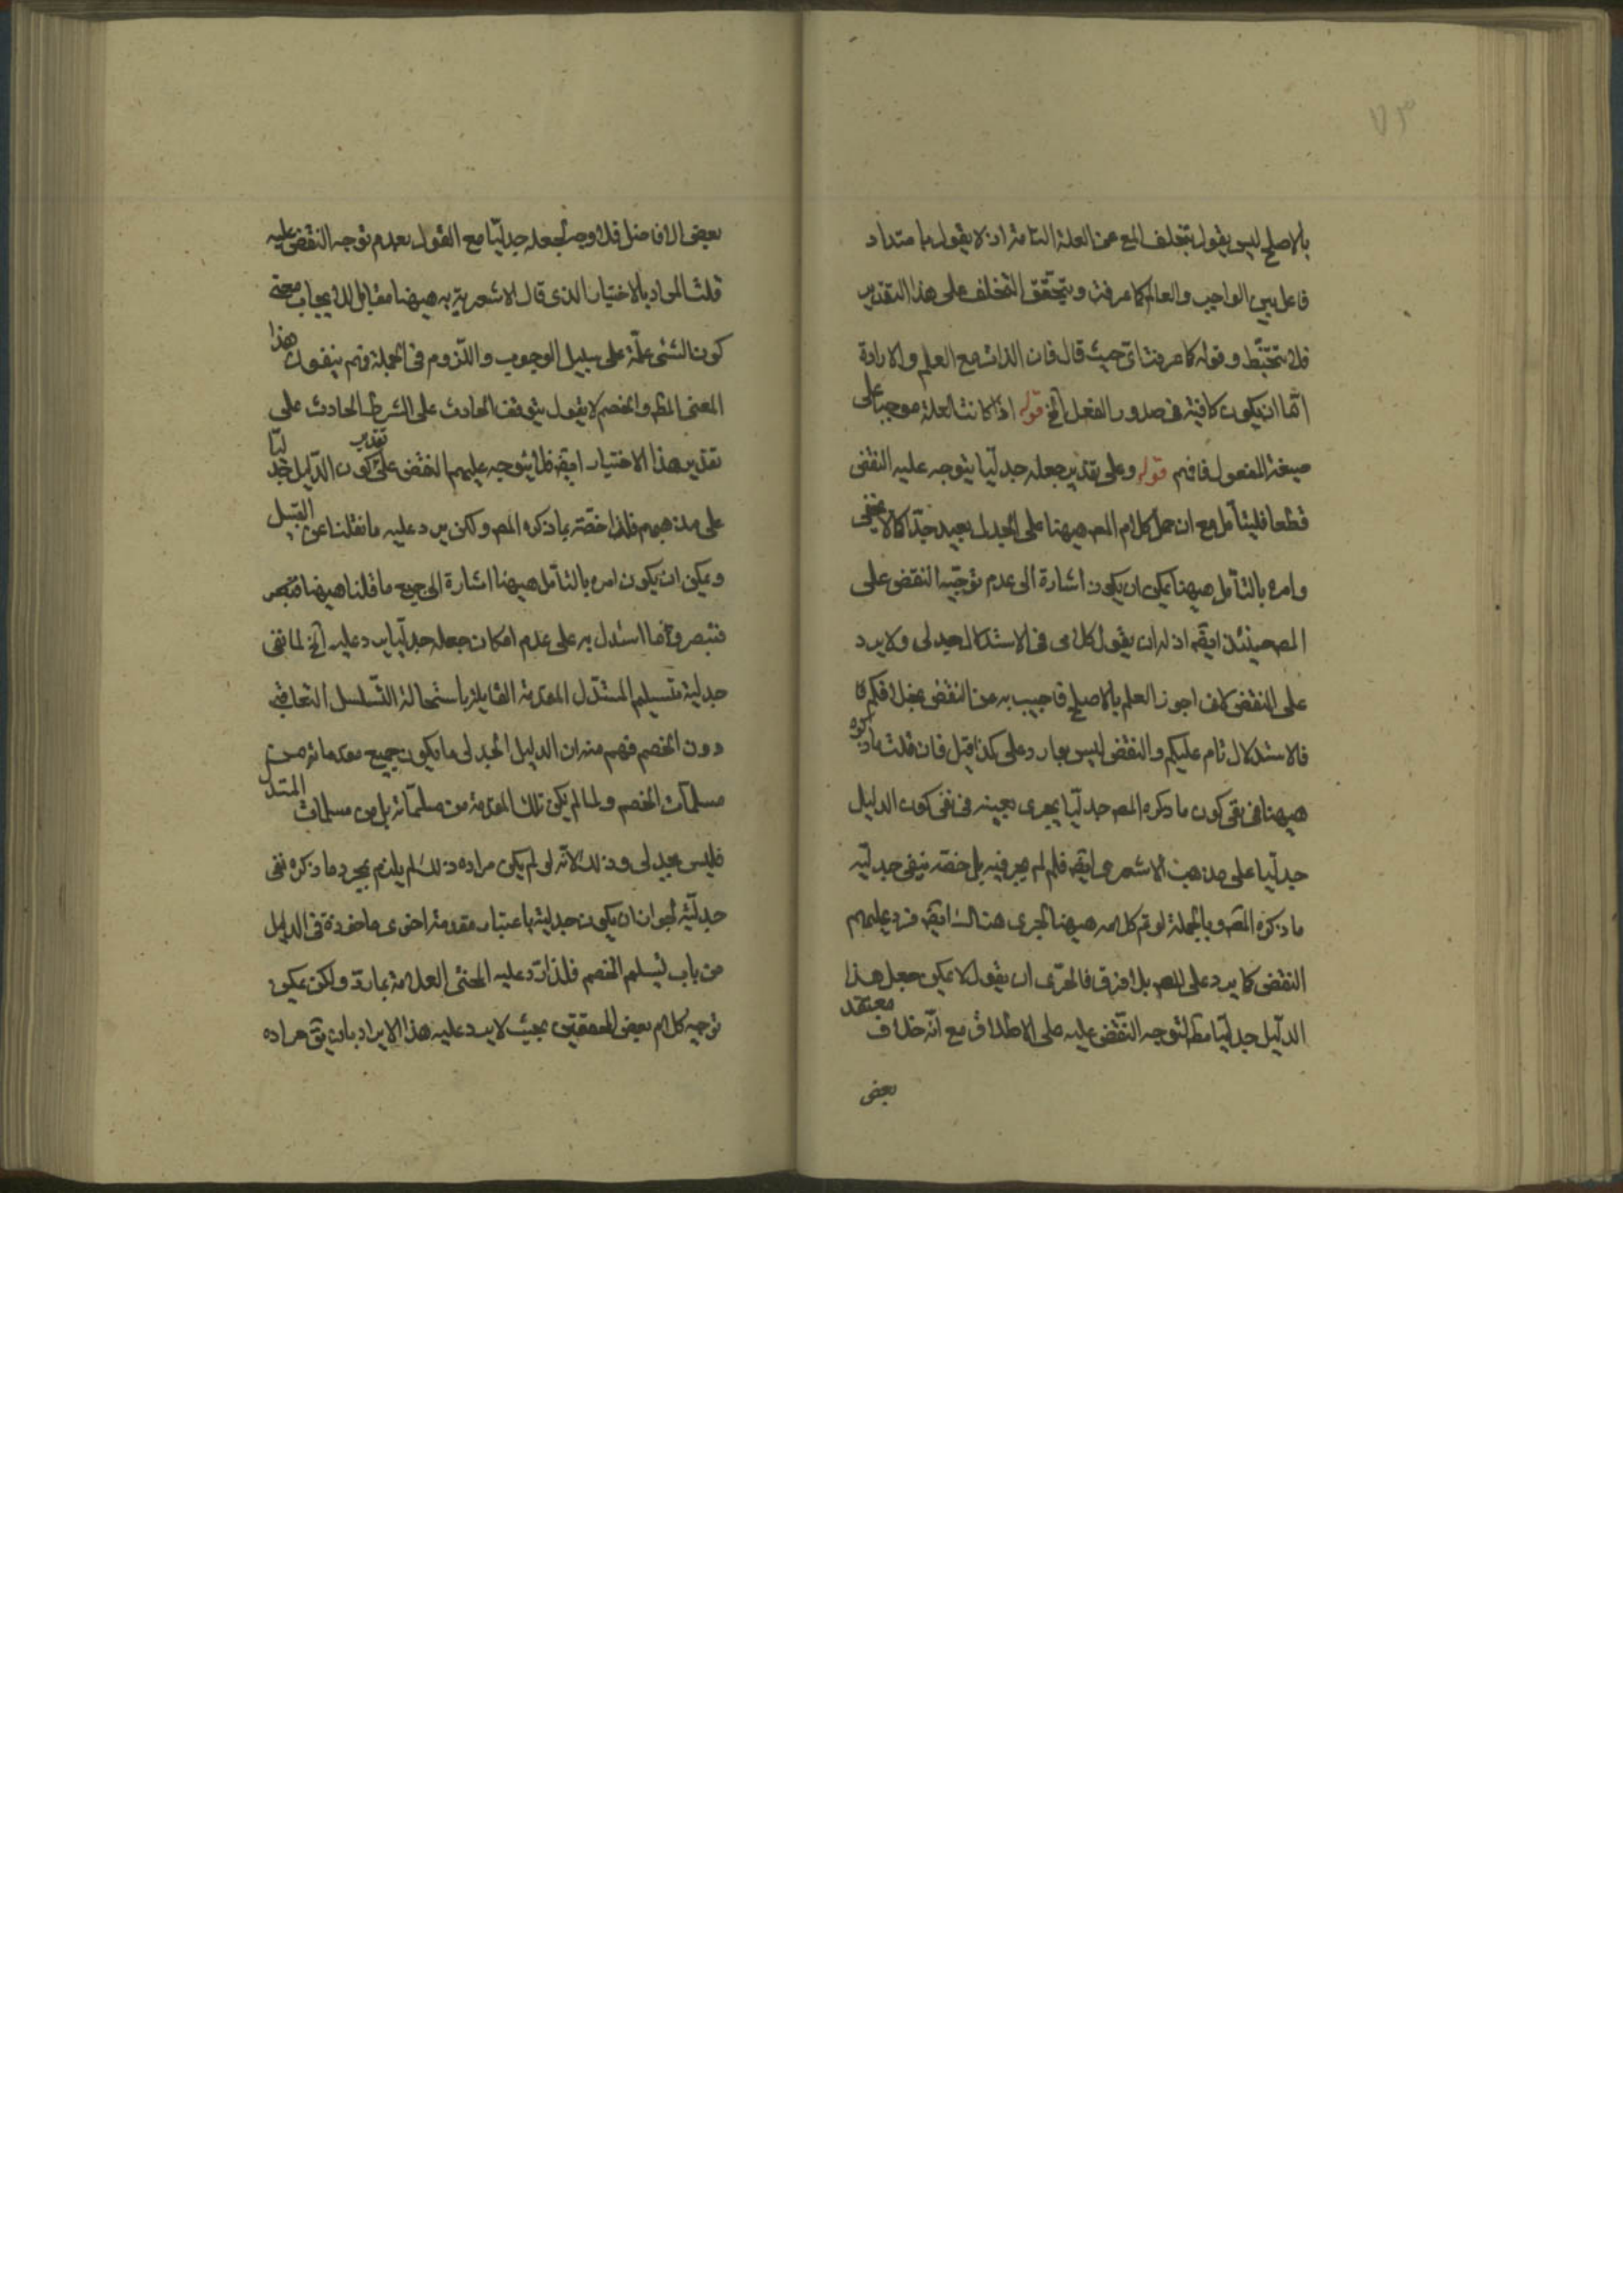 ٧٣
بالاصلح ليس يقول بتخلف المع عن العلة التامة اذ لا يقول بامتداد
فاعل بين الواجب والعالم كما عرفت ويتحقق التخلف على هذا التقدير
فلا تتخبط وقوله كما عرفت اى حيث قال فان الذات مع العلم والارادة
اما ان يكون كافية فى صدور الفعل الخ قوله اذا كانت العلة موجبا على
صيغة المفعول فافهم قوله وعلى تقدير جعله جدليا يتوجه عليه النقض
قطعا فليتأمل مع ان حمل كلام المص هيهنا على الجدل بعيد جدا كما لا يخفى
وامره بالتأمل هيهنا يمكن ان يكون اشارة الى عدم توجيه النقض على
المص حينئذ ايضه اذ له ان يقول كلامى فى الاستدلال جدلى ولا يرد
على النقض لانى اجوز العلم بالاصلح فاجيب به عن النقض بخلافكم
فالاستدلال تام عليكم والنقض ليس بوارد على هكذا قيل فان قلت ما ذكره
هيهنا فى نفى كون ما ذكره المص جدليا يجرى بعينه فى نفى كون الدليل
جدليا على مذهب الاشعرى ايضه فلم لم يجر فيه بل خصه بنفى جدليه
ما ذكره المص وبالجملة لو تم كلامه هيهنا لجرى هناك ايضه فيرد عليهم
النقض كما يرد على المص بلا فرق فالحرى ان يقول لا يمكن جعل هذا
الدليل جدليا مط لتوجه النقض عليه على الاطلاق مع انه خلاف معتقد
بعض
بعض الافاضل فلا وجه لجعله جدليا مع القول بعدم توجه النقض عليه
قلت المراد بالاختيار الذى قال الاشعرية به هيهنا مقابل الايجاب بمعنى
كون الشئ علة على سبيل الوجوب واللزوم فى الجملة فهم ينفون هذا
المعنى المط والخصم لا يقول بتوقف الحادث على الشرط الحادث على
تقدير هذا الاختيار ايضه فلا يتوجه عليهم النقض على تقدير كون الدليل جدليا
على مذهبهم فلذا خصه بما ذكره المص ولكن يرد عليه ما نقلنا عن القبيل
ويمكن ان يكون امره بالتأمل هيهنا اشارة الى جميع ما قلنا هيهنا فتبصر
فتبصر وانما استدل به على عدم امكان جعله جدليا يرد عليه الخ لما نفى
جدلية بتسليم المستدل المقدمة القايلة باستحالة التسلسل التعاقبى
دون الخصم فهم منه ان الدليل الجدلى ما يكون جميع مقدماته من
مسلمات الخصم ولما لم يكن تلك المقدمة من مسلماته بل من مسلمات المستدل
فليس بجدلى وذلك لانه لو لم يكن مراده ذلك لم يلزم بمجرد ما ذكره نفى
جدليته لجواز ان يكون جدلية باعتبار مقدمة اخرى ماخوذة فى الدليل
من باب تسلم الخصم فلذا رد عليه المحشى العلامة بما رد ولكن يمكن
توجيه كلام بعض المحققين بحيث لا يرد عليه هذا الايراد بان يق مراده